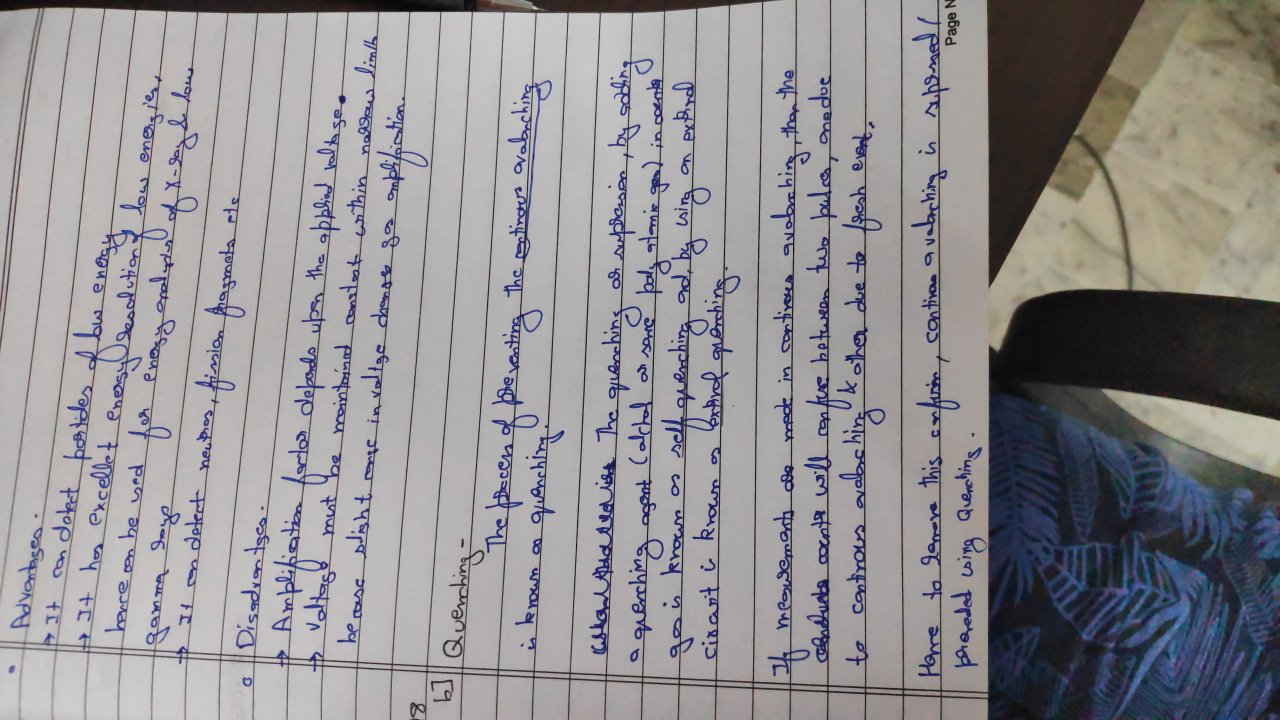 Advantages.
→ It can detect particles of low energy
→ It has excellet energy resolution of low energies,
hence can be used for energy analysis of X-ray & low
gamma rays
→ It can detect neutros, fission fragmets etc
Disadvantges.
→ Amplification factor depends upon the applied voltage.
→ Voltage must be maintained constat within narrow limits
because slight in voltge changes gas amplification.
18
b] Quenching -
The process of preventing the continous avalanching
is known as quenching.
The quenching or supression, by adding
a quenching agent (alchol or some poly atomic gas) in counter
gas is known as self quenching and, by using an extrnal
circuit is known as extrnal quenching.
If measurements are made in continous avalanching, then the
counts will confuse between two pulses, one due
to continous avalanching & other due to fresh event.
Hence to remove this confusion, continous avalanching is supressed /
using Quenching.
Page N